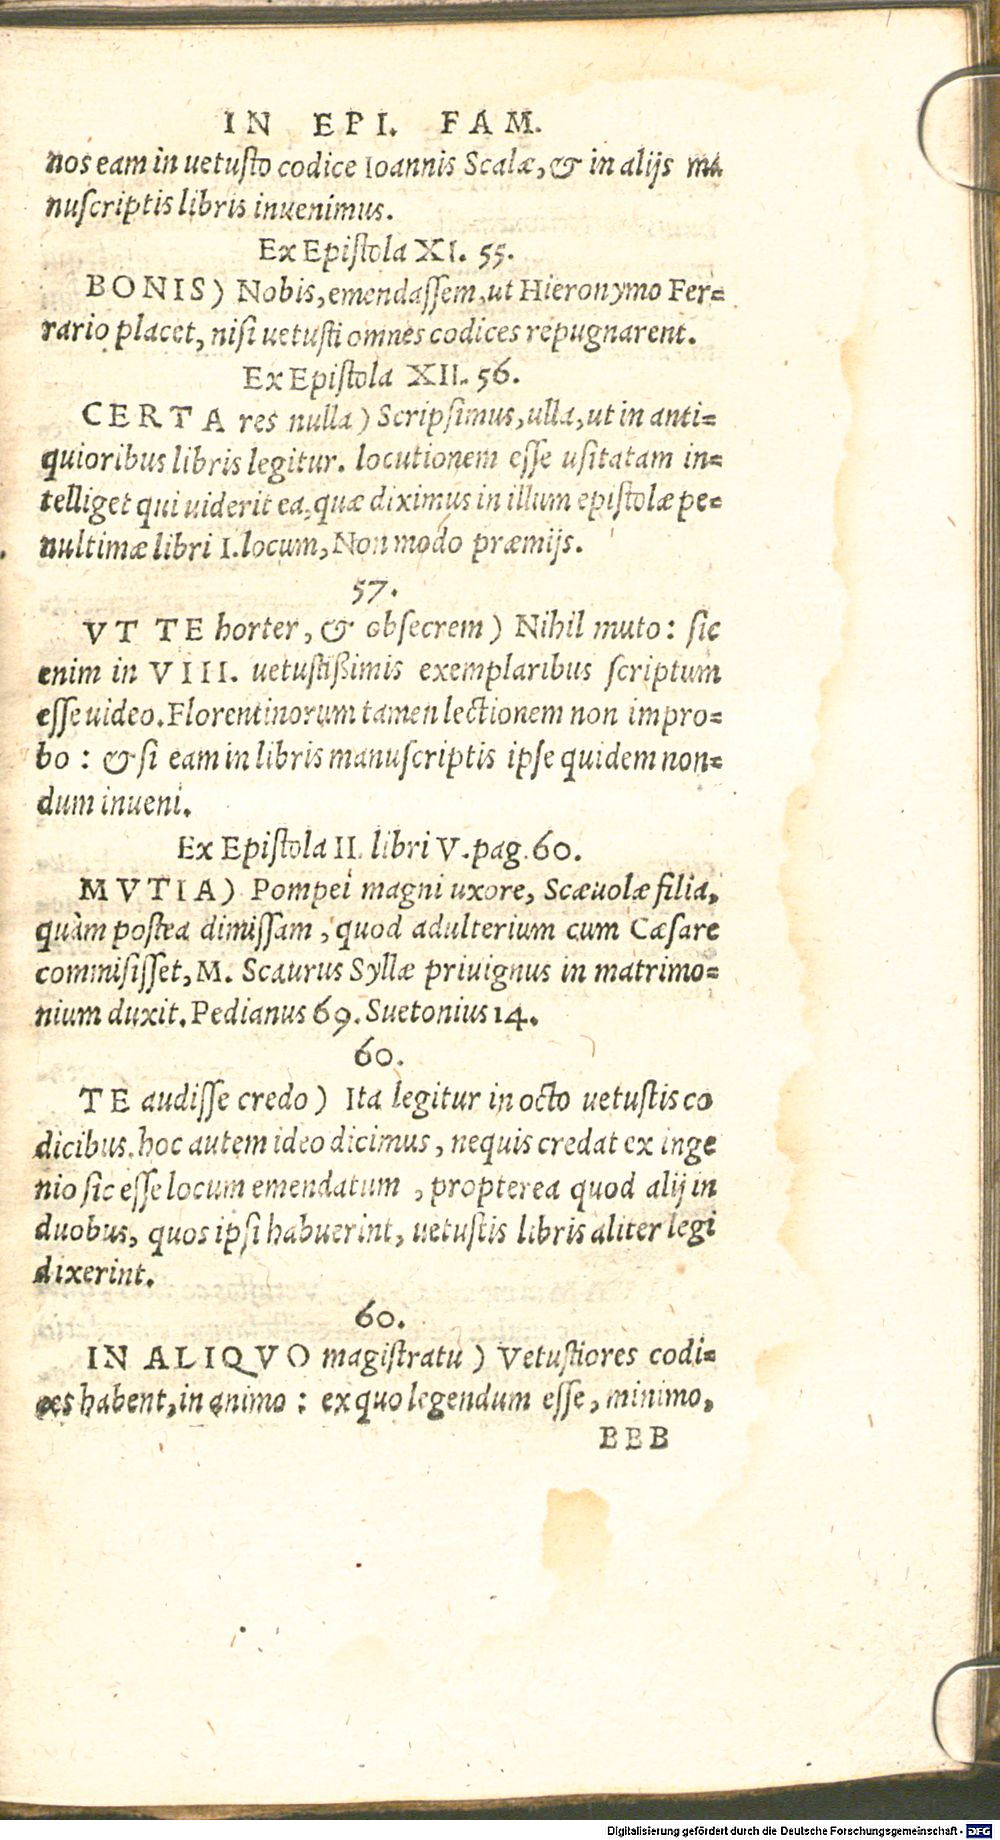 IN EPI. FAM.
nos eam in uetusto codice Ioannis Scalæ, & in alijs ma
nuscriptis libris inuenimus.
Ex Epistola XI. 55.
BONIS) Nobis, emendassem, ut Hieronymo Fer=
rario placet, nisi uetusti omnes codices repugnarent.
Ex Epistola XII. 56.
CERTA res nulla) Scripsimus, ulla, ut in anti=
quioribus libris legitur. locutionem esse usitatam in=
telliget qui uiderit ea, quæ diximus in illum epistolæ pe=
nultimæ libri I. locum, Non modo præmijs.
57.
VT TE horter, & obsecrem) Nihil muto: sic
enim in VIII. uetustißimis exemplaribus scriptum
esse uideo. Florentinorum tamen lectionem non impro=
bo: & si eam in libris manuscriptis ipse quidem non=
dum inueni.
Ex Epistola II. libri V. pag. 60.
MVTIA) Pompei magni uxore, Scæuolæ filia,
quàm postea dimissam, quod adulterium cum Cæsare
commisisset, M. Scaurus Syllæ priuignus in matrimo=
nium duxit. Pedianus 69. Suetonius 14.
60.
TE audisse credo) Ita legitur in octo uetustis co
dicibus. hoc autem ideo dicimus, nequis credat ex inge
nio sic esse locum emendatum, propterea quod alij in
duobus, quos ipsi habuerint, uetustis libris aliter legi
dixerint.
60.
IN ALIQVO magistratu) Vetustiores codi=
ces habent, in animo: ex quo legendum esse, minimo,
BBB
Digitalisierung gefördert durch die Deutsche Forschungsgemeinschaft - DFG